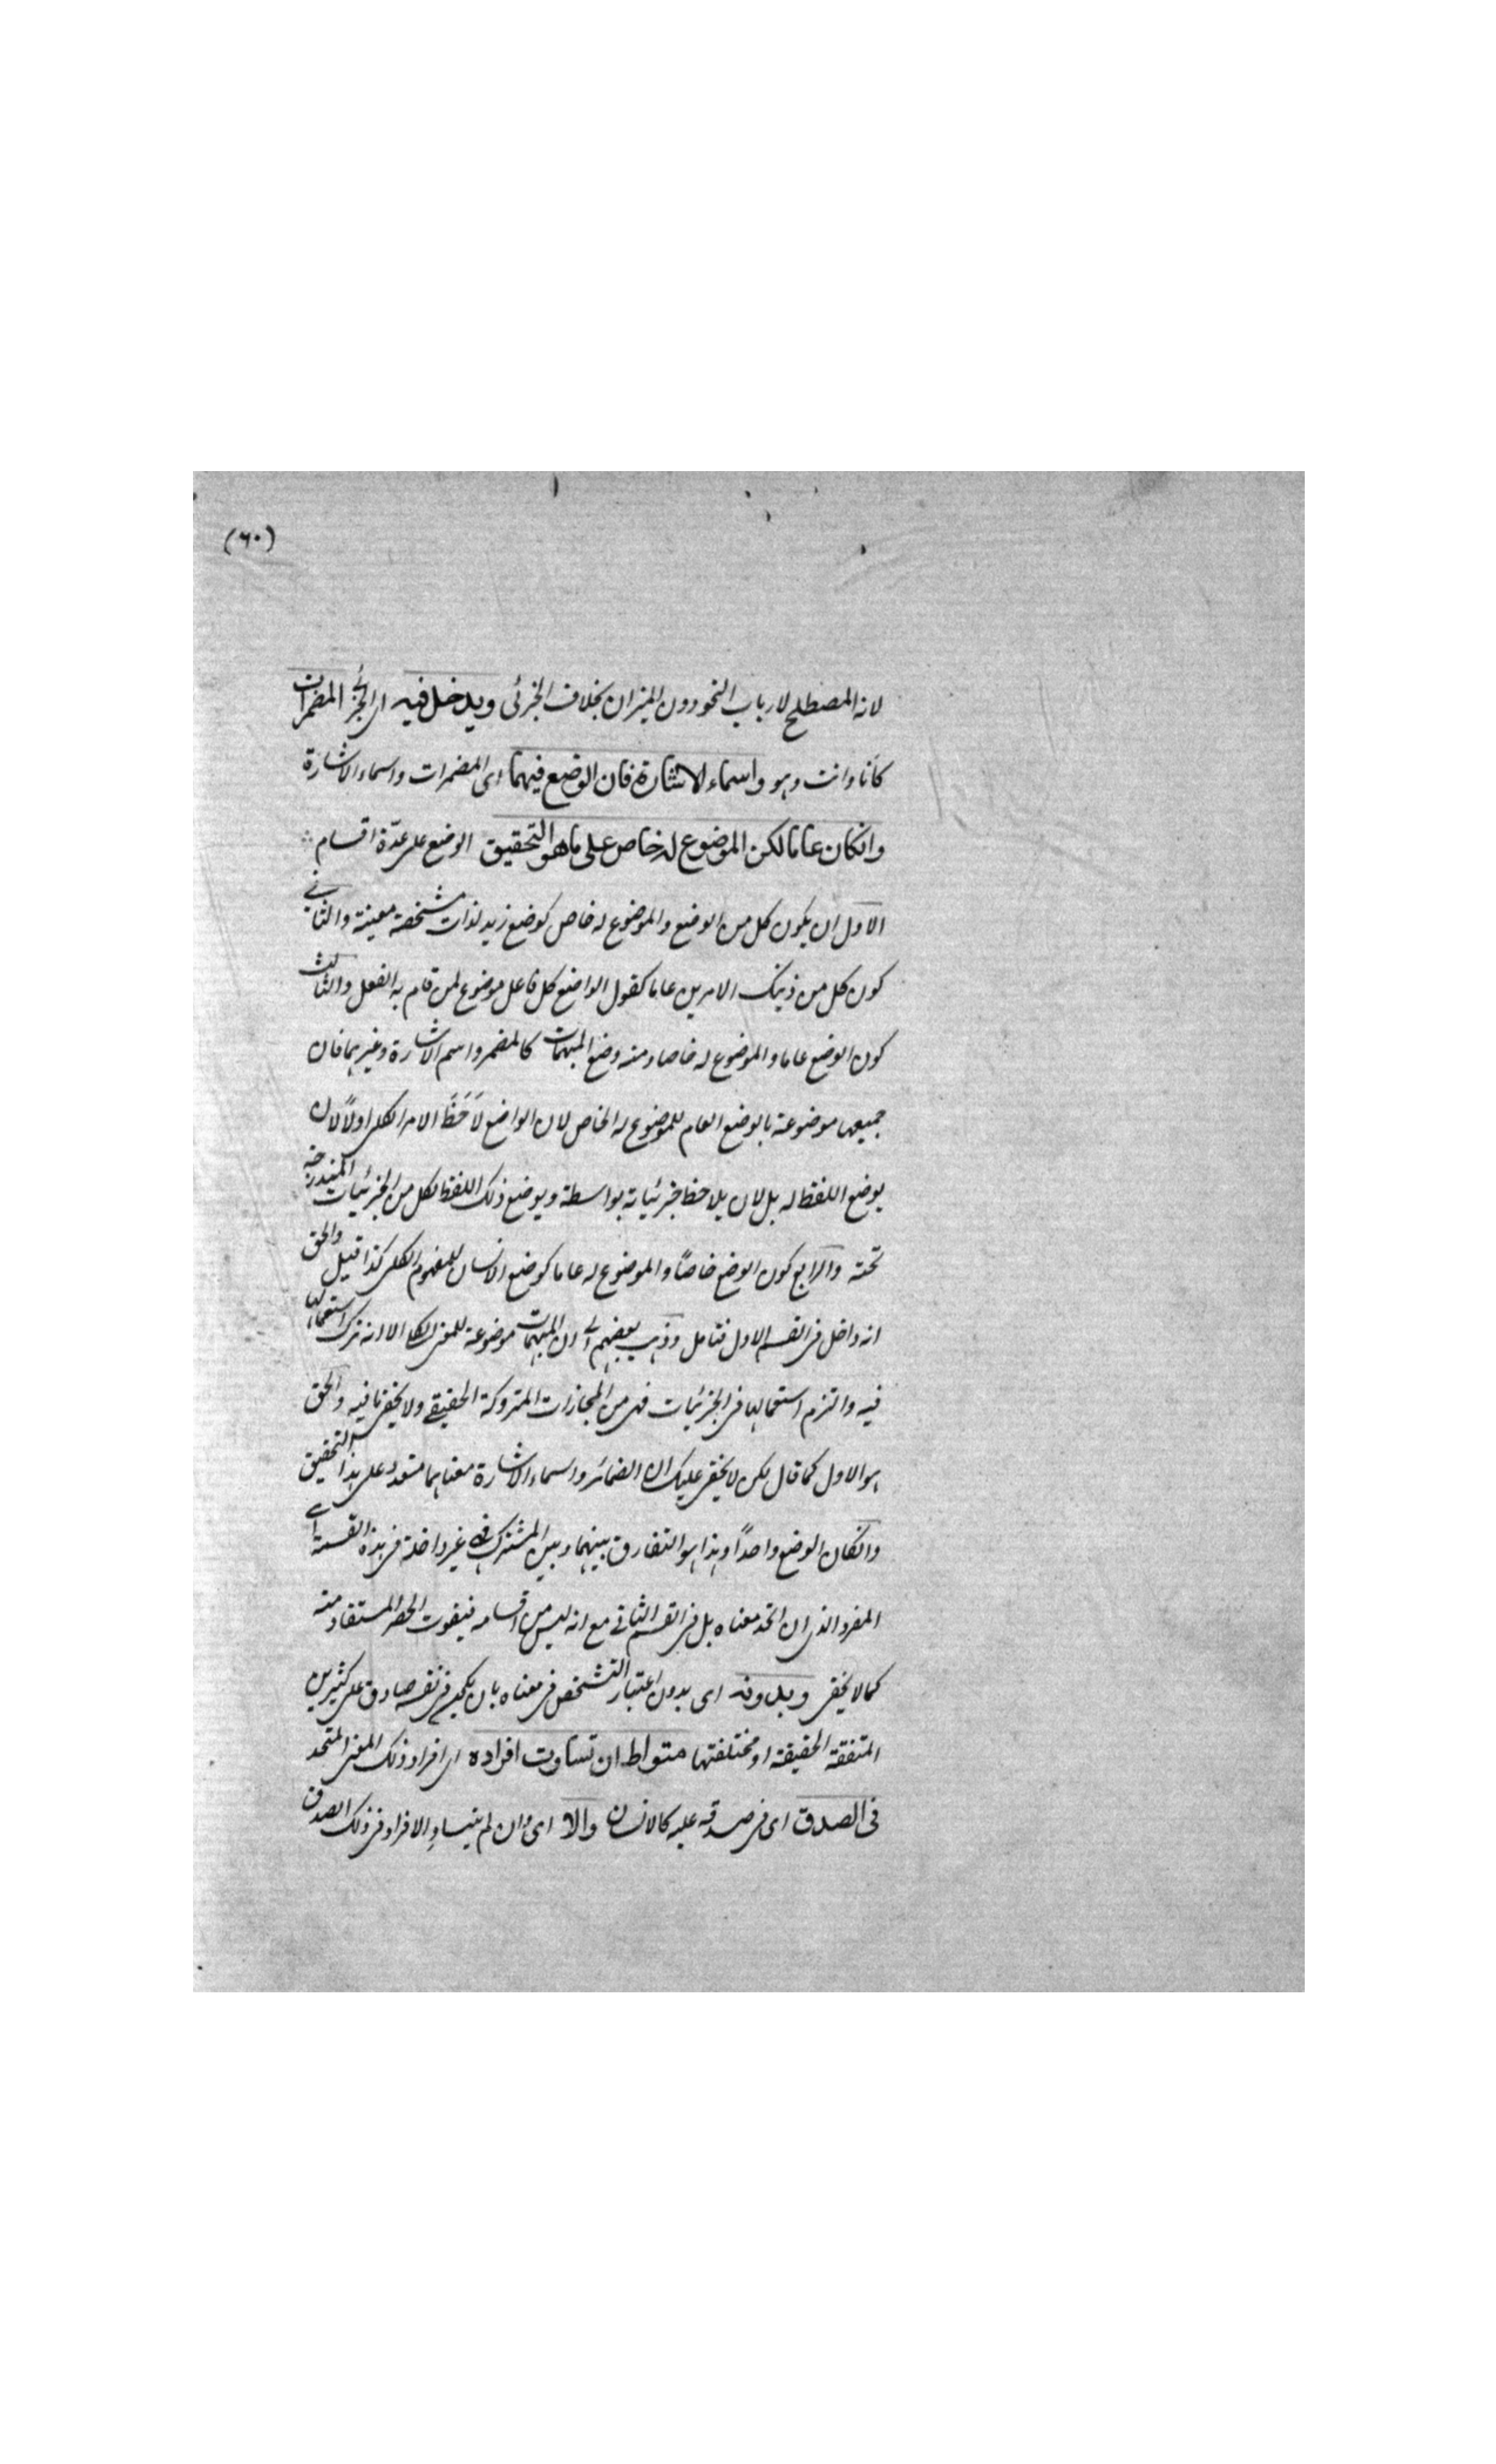 (٦٠)
لانه المصطلح لارباب النحو دون الميزان بخلاف الجزئى ويدخل فيه اى الجزئي المضمرات
كأنا وانت وهو واسماء الاشارة فان الوضع فيهما اى المضمرات واسماء الاشارة
وانكان عاما لكن الموضوع له خاص على ما هو التحقيق الوضع على عدّة اقسام
الاول ان يكون كل من الوضع والموضوع له خاص كوضع زيد لذات مشخصة معينة والثاني
كون كل من ذينك الامرين عاما كقول الواضع كل فاعل موضوع لمن قام به الفعل والثالث
كون الوضع عاما والموضوع له خاصا ومنه وضع المبهمات كالمضمر واسم الاشارة وغيرهما فان
جميعها موضوعة بالوضع العام للموضوع له الخاص لان الواضع لاَحَظَ الامر الكلى اولاً لا لان
يوضع اللفظ له بل لان يلاحظ جزئياته بواسطة ويوضع ذلك اللفظ لكل من الجزئيات المندرجة
تحته والرابع كون الوضع خاصاً والموضوع له عاما كوضع الانسان للمفهوم الكلى كذا قيل والحق
انه داخل فى القسم الاول فتامل وذهب بعضهم الى ان المبهمات موضوعة للمعنى الكلى الا انه ترك استعمالها
فيه والتزم استعمالها فى الجزئيات فهى من المجازات المتروكة الحقيقة ولا يخفى ما فيه والحق
هو الاول كما قال لكن لا يخفى عليك ان الضمائر واسماء الاشارة معناهما متعدد على هذا التحقيق
وانكان الوضع واحداً وهذا هو التفارق بينهما وبين المشترك فهى غير داخلة فى هذه القسمة اى
المفرد الذى ان اتحد معناه بل فى القسم الثانى مع انه ليس من اقسامه فيفوت الحصر المستفاد منه
كما لا يخفى وبدونه اى بدون اعتبار التشخص فى معناه بان يكون فى نفسه صادق على كثيرين
المتفقة الحقيقة او مختلفتها متواط ان تساوت افراده اى افراد ذلك المعنى المتحد
فى الصدق اى فى صدقه عليه كالانسان والا اى وان لم يتساو الافراد فى ذلك الصدق